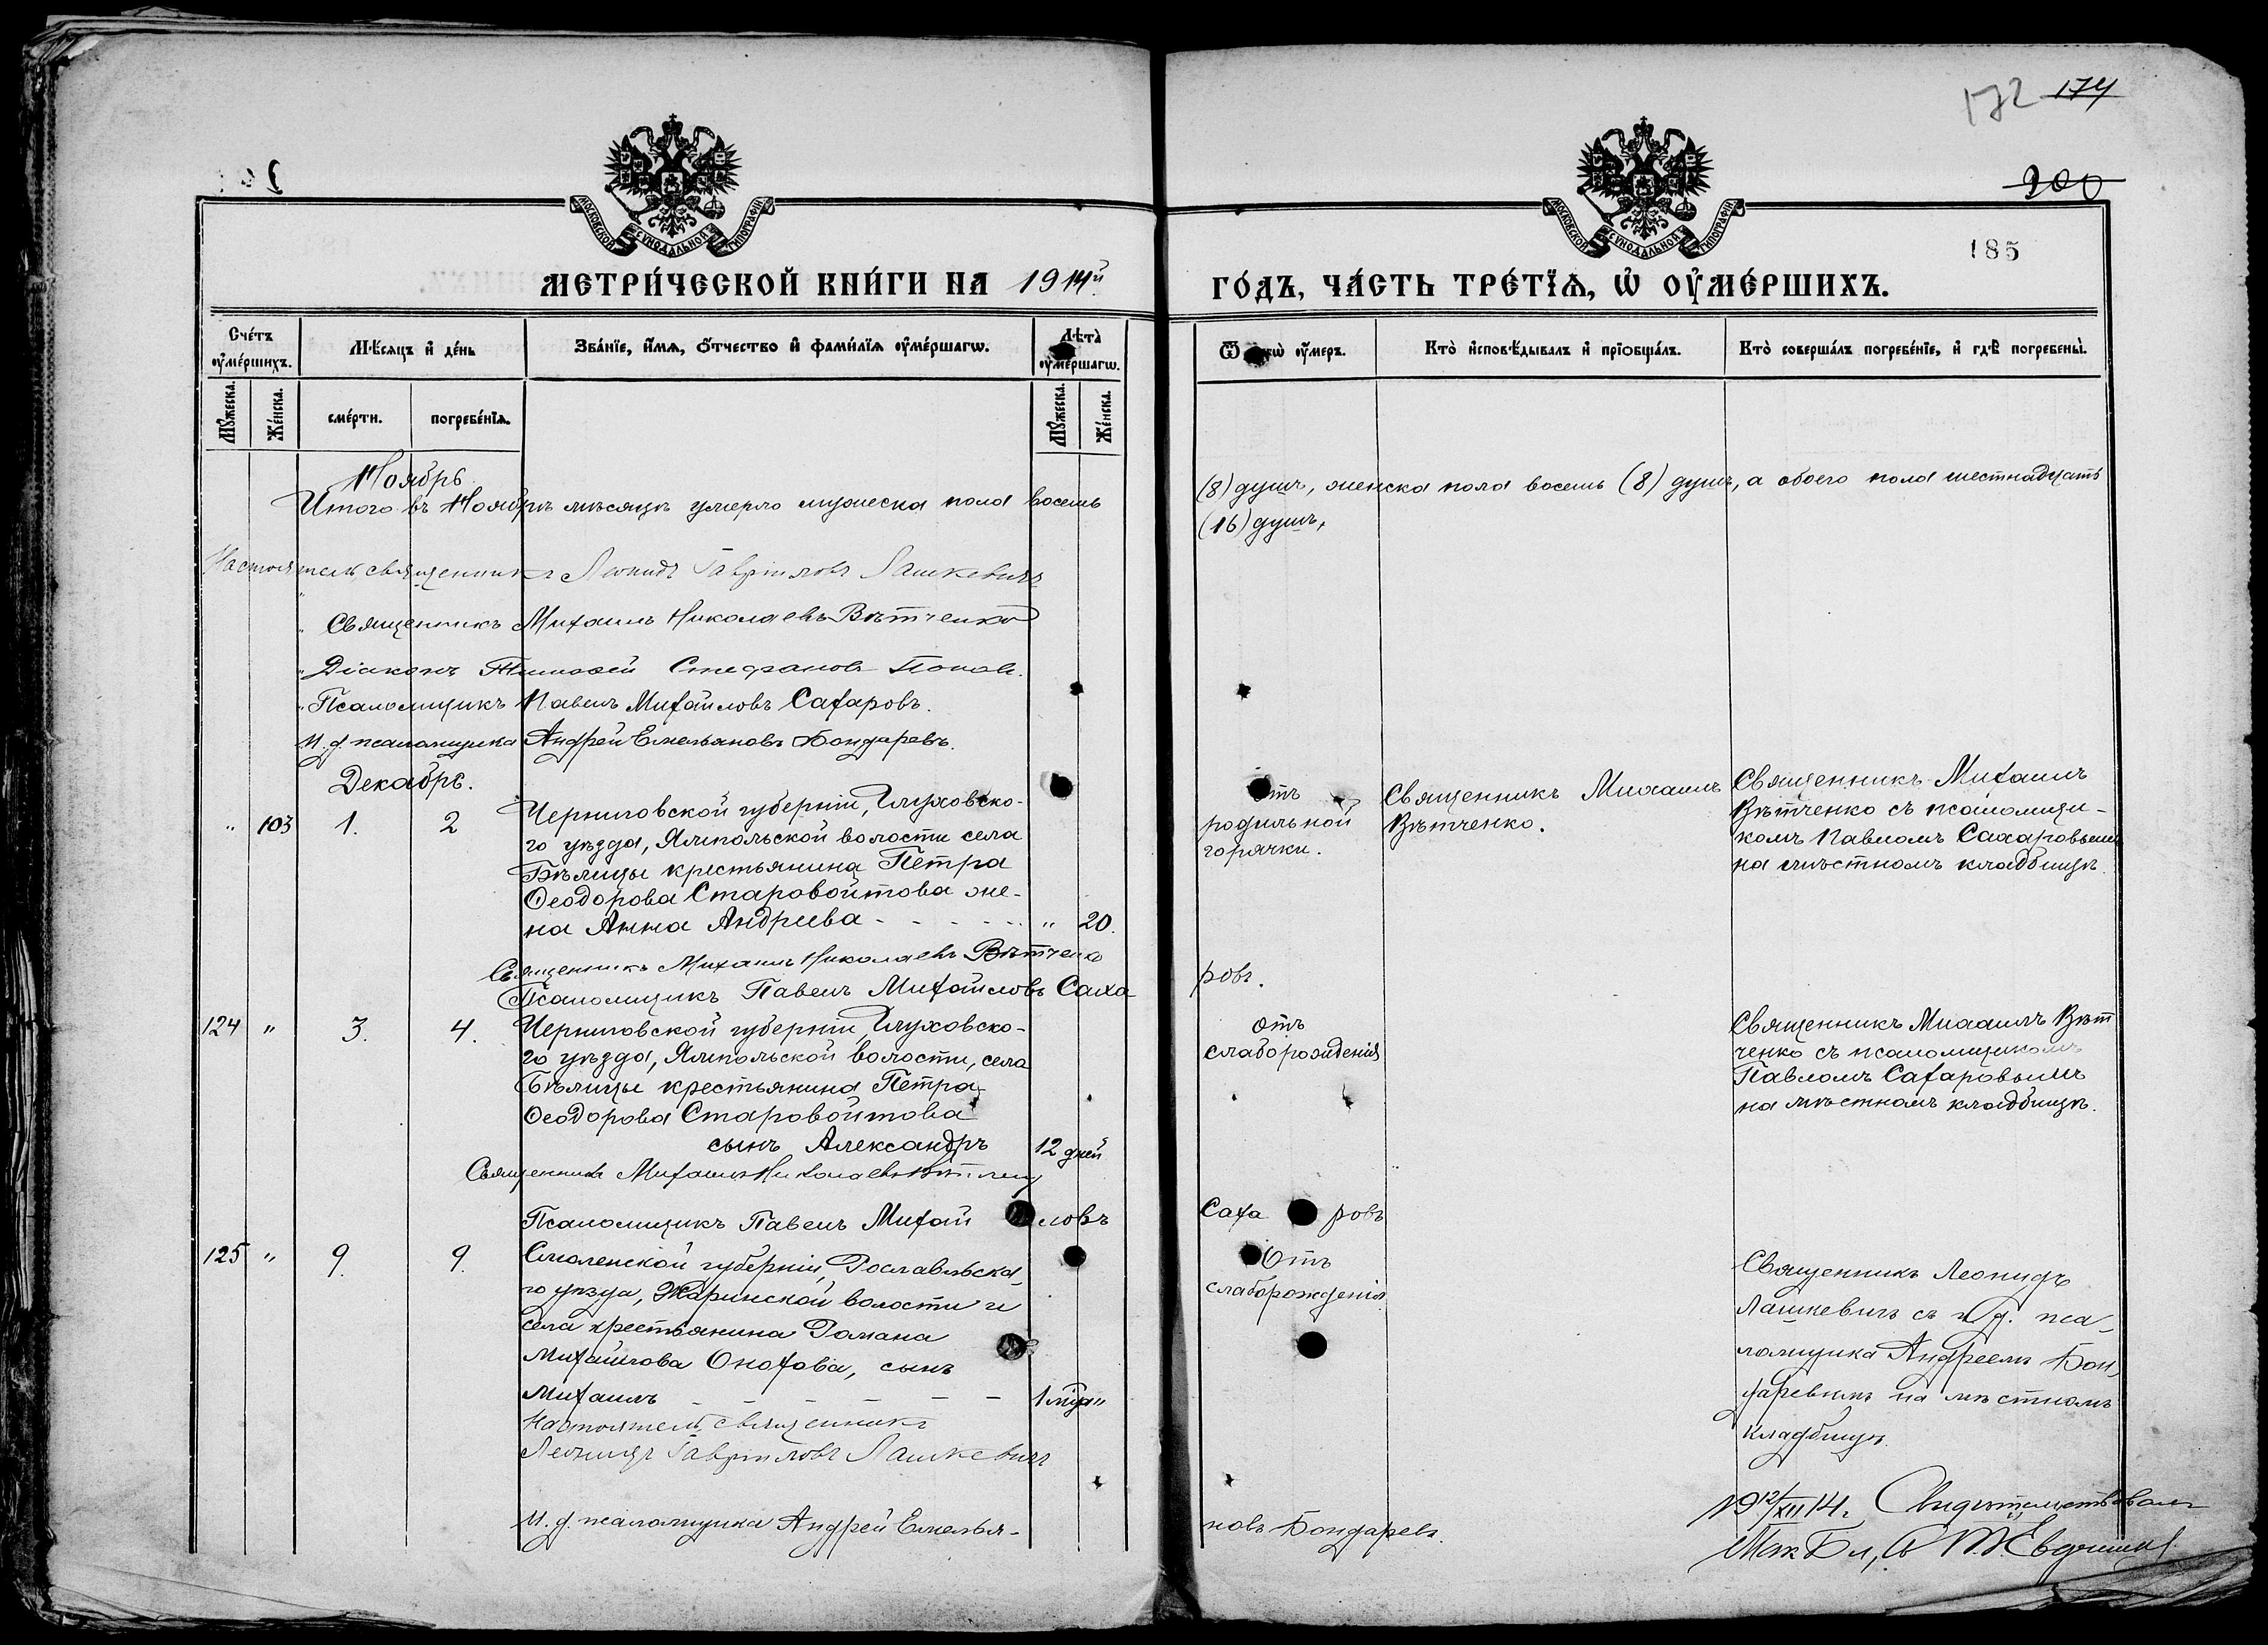 172 174
200
185
МОСКОВСКОЙ СѴНОДАЛЬНОЙ ТИПОГРАФІИ
МОСКОВСКОЙ СѴНОДАЛЬНОЙ ТИПОГРАФІИ
МЕТРИ́ЧЕСКОЙ КНИ́ГИ НА 1914й
ГО́ДЪ, ЧА́СТЬ ТРЕ́ТЇѦ, Ѡ҆ ОУ҆МЕ́РШИХЪ.
Сче́тъ оу҆ме́ршихъ.
Мѣ́сѧцъ и҆ де́нь
Зва́нїе, и҆́мѧ, ѻ҆́тчество и҆ фами́лїѧ оу҆ме́ршагѡ.
Лѣ́та оу҆ме́ршагѡ.
Му́жеска.
Же́нска.
сме́рти.
погребе́нїѧ.
Му́жеска.
Же́нска.
оу҆́меръ.
Кто̀ и҆сповѣ́дывалъ и҆ прїѡбща́лъ.
Кто̀ соверша́лъ погребе́нїе, и҆ гдѣ̀ погребены̀.
Ноябрь
Итого въ Ноябрѣ мѣсяцѣ умерло мужеска пола восемь
(8) душъ, женска пола восемь (8) душъ, а обоего пола шестнадцать
(16) душъ,
Настоятель священникъ Леонидъ Гавріиловъ Лашкевичъ
Священникъ Михаилъ Николаевъ Вѣтченко
Діаконъ Тимоѳей Стефановъ Попов
Псаломщикъ Павелъ Михайловъ Сахаровъ.
И. д. псаломщика Андрей Емельяновъ Бондаревъ.
Декабрь.
" 103 1. 2
Черниговской губерніи, Глуховско-
го уѣзда, Ямпольской волости села
Бѣлицы крестьянина Петра
Ѳеодорова Старовойтова же-
на Анна Андреева - - - - - " 20.
Отъ
родильной
горячки.
Священникъ Михаилъ
Вѣтченко.
Священникъ Михаилъ
Вѣтченко съ псаломщи-
комъ Павломъ Сахаровымъ
на мѣстномъ кладбищѣ.
Священникъ Михаилъ Николаевъ Вѣтченко
Псаломщикъ Павелъ Михайловъ Саха
ровъ.
124 " 3. 4.
Черниговской губерніи, Глуховско-
го уѣзда, Ямпольской волости, села
Бѣлицы крестьянина Петра
Ѳеодорова Старовойтова
сынъ Александръ 12 дней
отъ
слаборожденія
Священникъ Михаилъ Вѣт
ченко съ псаломщикомъ
Павломъ Сахаровымъ
на мѣстномъ кладбищѣ.
Священникъ Михаилъ Николаевъ Вѣтченко
Псаломщикъ Павелъ Михай ловъ
Саха ровъ
125 " 9. 9.
Смоленской губерніи, Рославльска-
го уѣзда, Жаринской волости и
села крестьянина Романа
Михайлова Онохова, сынъ
Михаилъ - - - - - - 1 мѣс "
Отъ
слаборожденія
Священникъ Леонидъ
Лашкевичъ съ и. д. пса-
ломщика Андреемъ Бон-
даревымъ на мѣстномъ
кладбищѣ.
Настоятель, священникъ
Леонидъ Гавріиловъ Лашкевичъ
И. д. псаломщика Андрей Емелья-
новъ Бондаревъ.
19 12/XII 14 г. Свидѣтельствовалъ